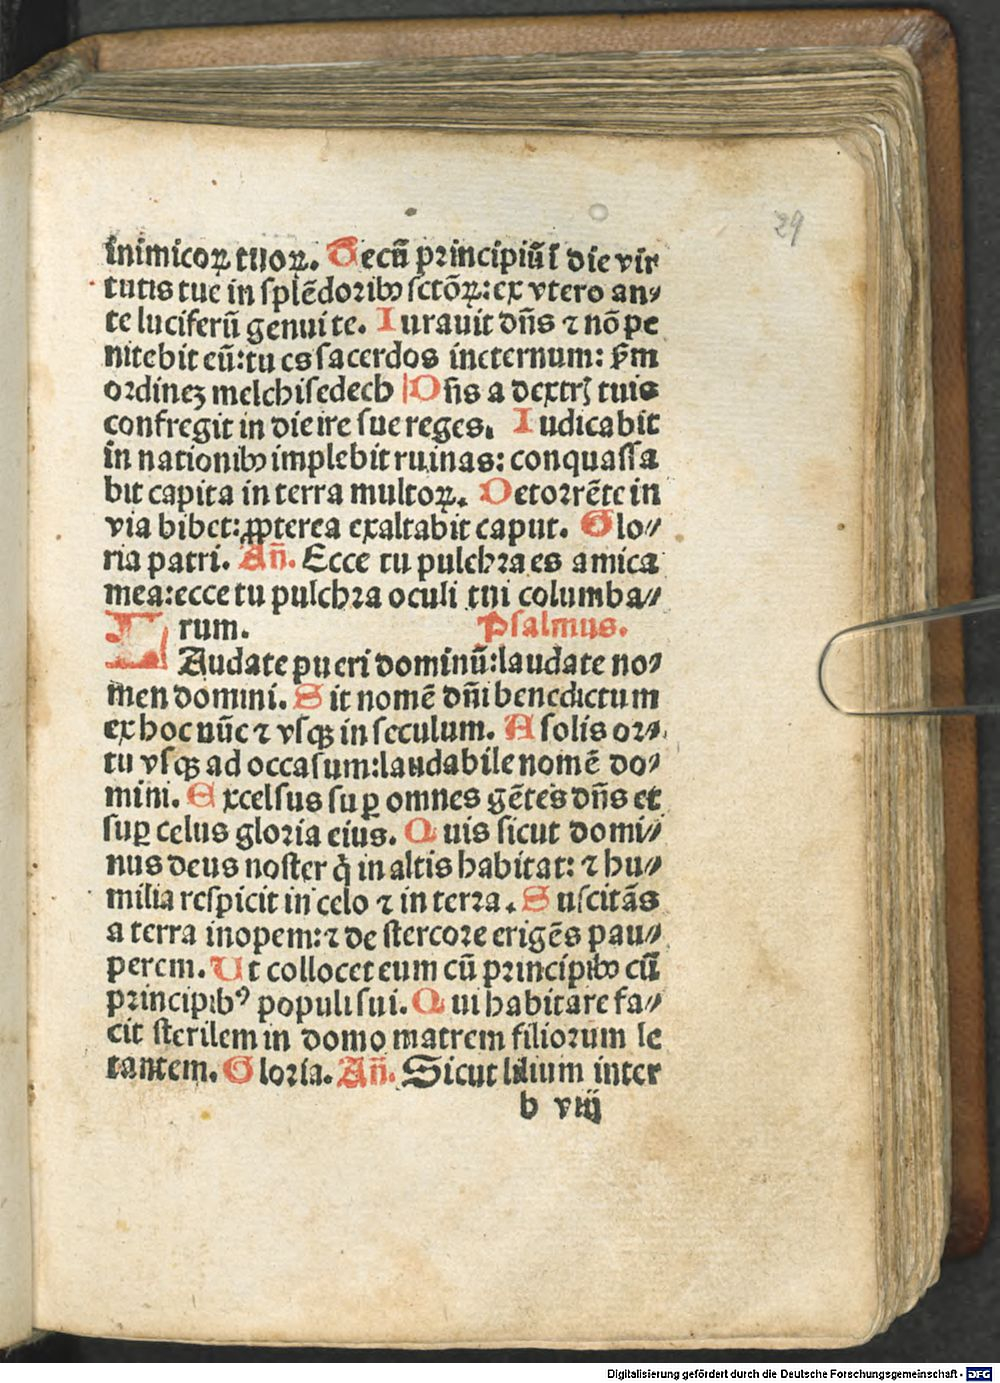 29
inimicoꝝ tuoꝝ. Tecū principiū ī die vir
tutis tue in splēdoribꝰ sctōꝝ: ex vtero an⸗
te luciferū genui te. Iurauit dn̄s ⁊ nō pe
nitebit eū: tu es sacerdos ineternum: ẜm
ordineꝫ melchisedech Dn̄s a dextrꝭ tuis
confregit in die ire sue reges. Iudicabit
in nationibꝰ implebit ruinas: conquassa
bit capita in terra multoꝝ. De torrēte in
via bibet: ꝓpterea exaltabit caput. Glo⸗
ria patri. An̄. Ecce tu pulchra es amica
mea: ecce tu pulchra oculi tui columba⸗
rum. Psalmus.
LAudate pueri dominū: laudate no⸗
men domini. Sit nomē dn̄i benedictum
ex hoc nūc ⁊ vsqꝫ in seculum. A solis or⸗
tu vsqꝫ ad occasum: laudabile nomē do⸗
mini. Excelsus suꝑ omnes gētes dn̄s et
suꝑ celus gloria eius. Quis sicut domi⸗
nus deus noster q̇ in altis habitat: ⁊ hu⸗
milia respicit in celo ⁊ in terra. Suscitās
a terra inopem: ⁊ de stercore erigēs pau⸗
perem. Ut collocet eum cū principibꝰ cū
principibꝰ populi sui. Qui habitare fa⸗
cit sterilem in domo matrem filiorum le
tantem. Gloria. An̄. Sicut lilium inter
b viij
Digitalisierung gefördert durch die Deutsche Forschungsgemeinschaft - DFG